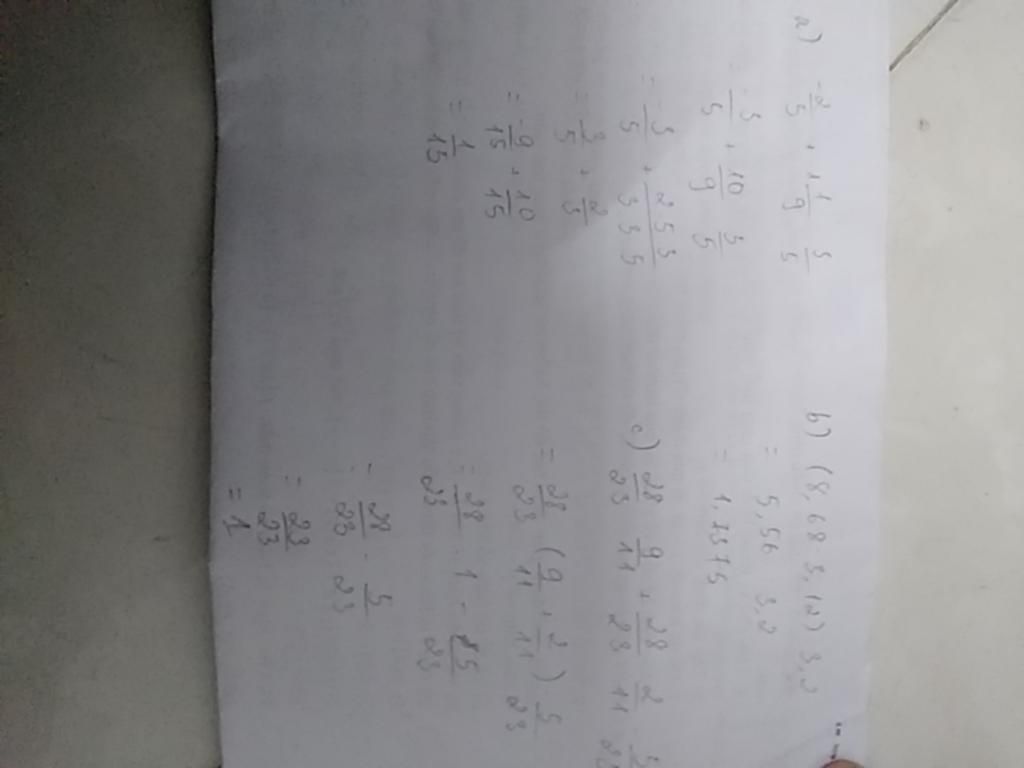 a) -3/5 + 1 1/9 3/5
-3/5 + 10/9 3/5
= -3/5 + 2 5 3 / 3 3 5
= -3/5 + 2/3
= -9/15 + 10/15
= 1/15
b) (8,68 - 3,12) 3,2
= 5,56 3,2
= 1,7375
c) 28/23 9/11 + 28/23 2/11 5/23
= 28/23 (9/11 + 2/11) 5/23
= 28/23 . 1 - 5/23
= 28/23 - 5/23
= 23/23
= 1